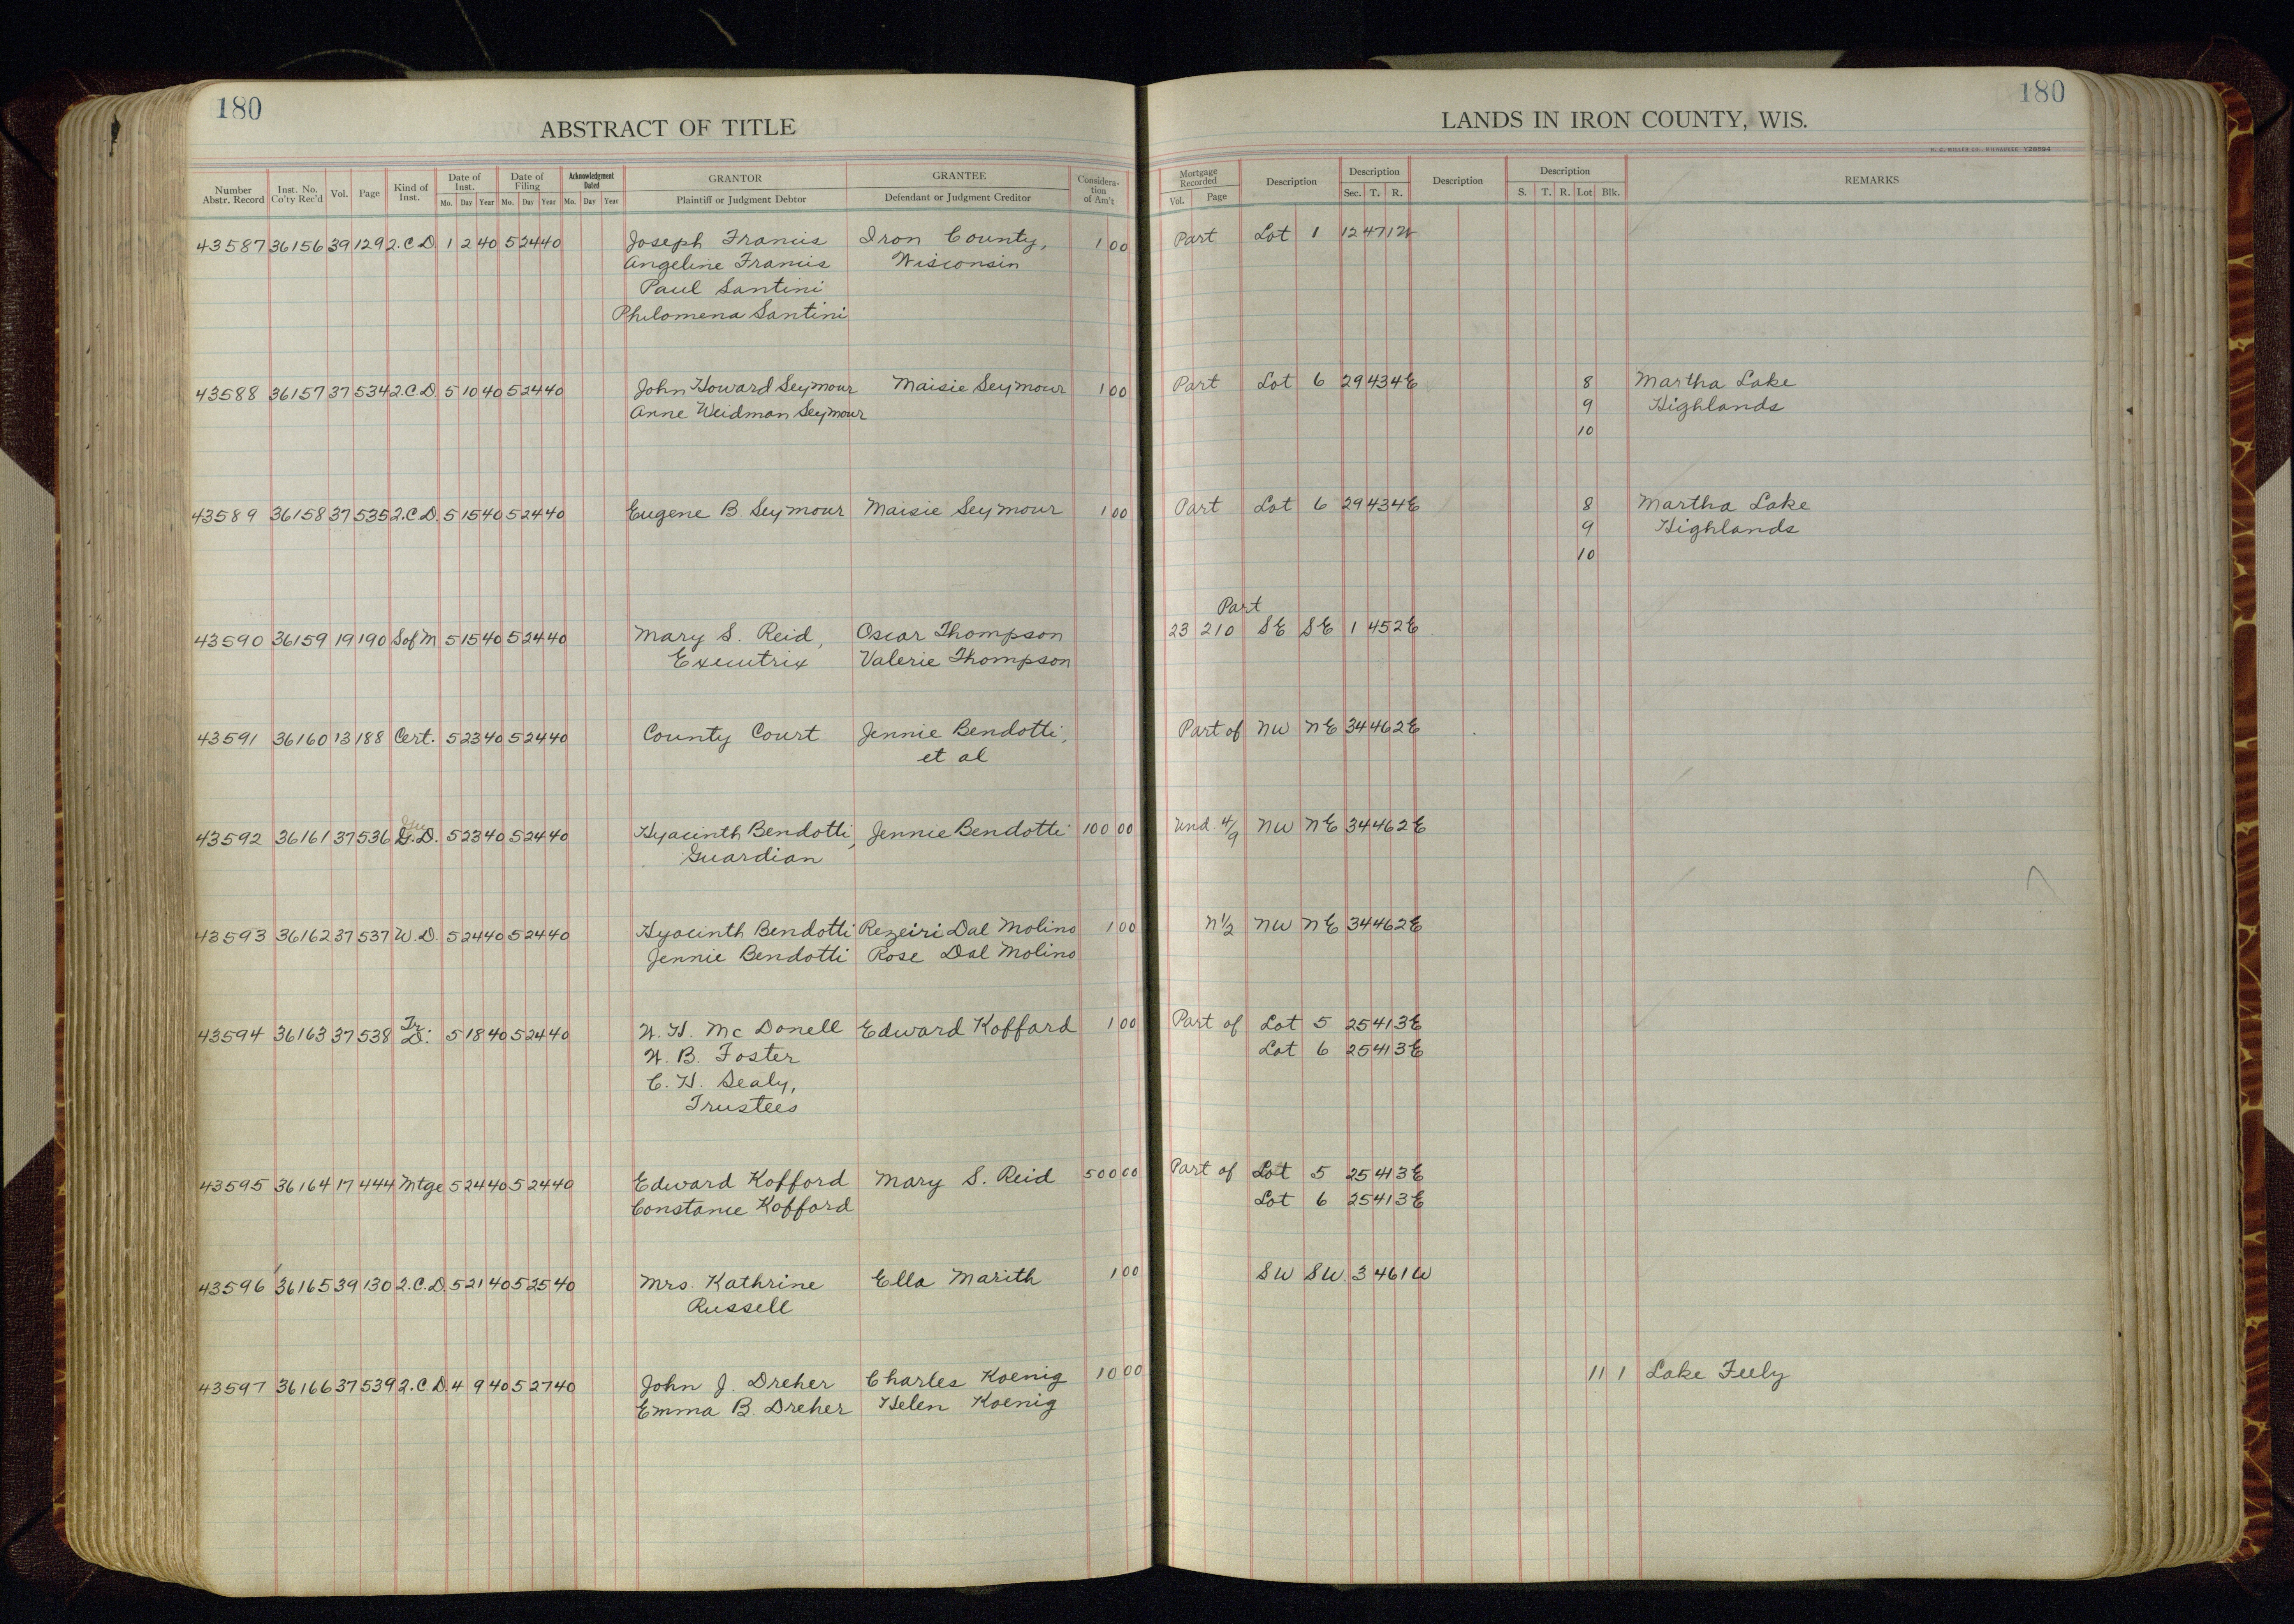 180
ABSTRACT OF TITLE
Number Abstr. Record | Inst. No. Co'ty Rec'd | Vol. | Page | Kind of Inst. | Date of Inst. Mo. Day Year | Date of Filing Mo. Day Year | Acknowledgment Dated Mo. Day Year | GRANTOR Plaintiff or Judgment Debtor | GRANTEE Defendant or Judgment Creditor | Considera-tion of Am't
43587 36156 39 129 2.C.D. 1 2 40 5 24 40 Joseph Francis Iron County, 1 00
Angeline Francis Wisconsin
Paul Santini
Philomena Santini
43588 36157 37 534 2.C.D. 5 10 40 5 24 40 John Howard Seymour Maisie Seymour 1 00
Anne Weidman Seymour
43589 36158 37 535 2.C.D. 5 15 40 5 24 40 Eugene B. Seymour Maisie Seymour 1 00
43590 36159 19 190 S of M 5 15 40 5 24 40 Mary S. Reid, Oscar Thompson
Executrix Valerie Thompson
43591 36160 13 188 Cert. 5 23 40 5 24 40 County Court Jennie Bendotti,
et al
43592 36161 37 536 G.D. 5 23 40 5 24 40 Hyacinth Bendotti, Jennie Bendotti 100 00
Guardian
43593 36162 37 537 W.D. 5 24 40 5 24 40 Hyacinth Bendotti Rezeiri Dal Molino 1 00
Jennie Bendotti Rose Dal Molino
43594 36163 37 538 Tr. D. 5 18 40 5 24 40 W. H. McDonell Edward Kofford 1 00
W. B. Foster
C. H. Sealy,
Trustees
43595 36164 17 444 Mtge 5 24 40 5 24 40 Edward Kofford Mary S. Reid 500 00
Constance Kofford
43596 36165 39 130 2.C.D. 5 21 40 5 25 40 Mrs. Kathrine Ella Marith 1 00
Russell
43597 36166 37 539 2.C.D. 4 9 40 5 27 40 John J. Dreher Charles Koenig 10 00
Emma B. Dreher Helen Koenig
180
LANDS IN IRON COUNTY, WIS.
H. C. MILLER CO., MILWAUKEE
Mortgage Recorded Vol. Page | Description | Description Sec. T. R. | Description | Description S. T. R. Lot Blk. | REMARKS
Part Lot 1 12 47 1W
Part Lot 6 29 43 4E 8 Martha Lake
9 Highlands
10
Part Lot 6 29 43 4E 8 Martha Lake
9 Highlands
10
Part
23 210 SE SE 1 45 2E
Part of NW NE 34 46 2E
Und. 4/9 NW NE 34 46 2E
N1/2 NW NE 34 46 2E
Part of Lot 5 25 41 3E
Lot 6 25 41 3E
Part of Lot 5 25 41 3E
Lot 6 25 41 3E
SW SW 3 46 1W
11 1 Lake Feely